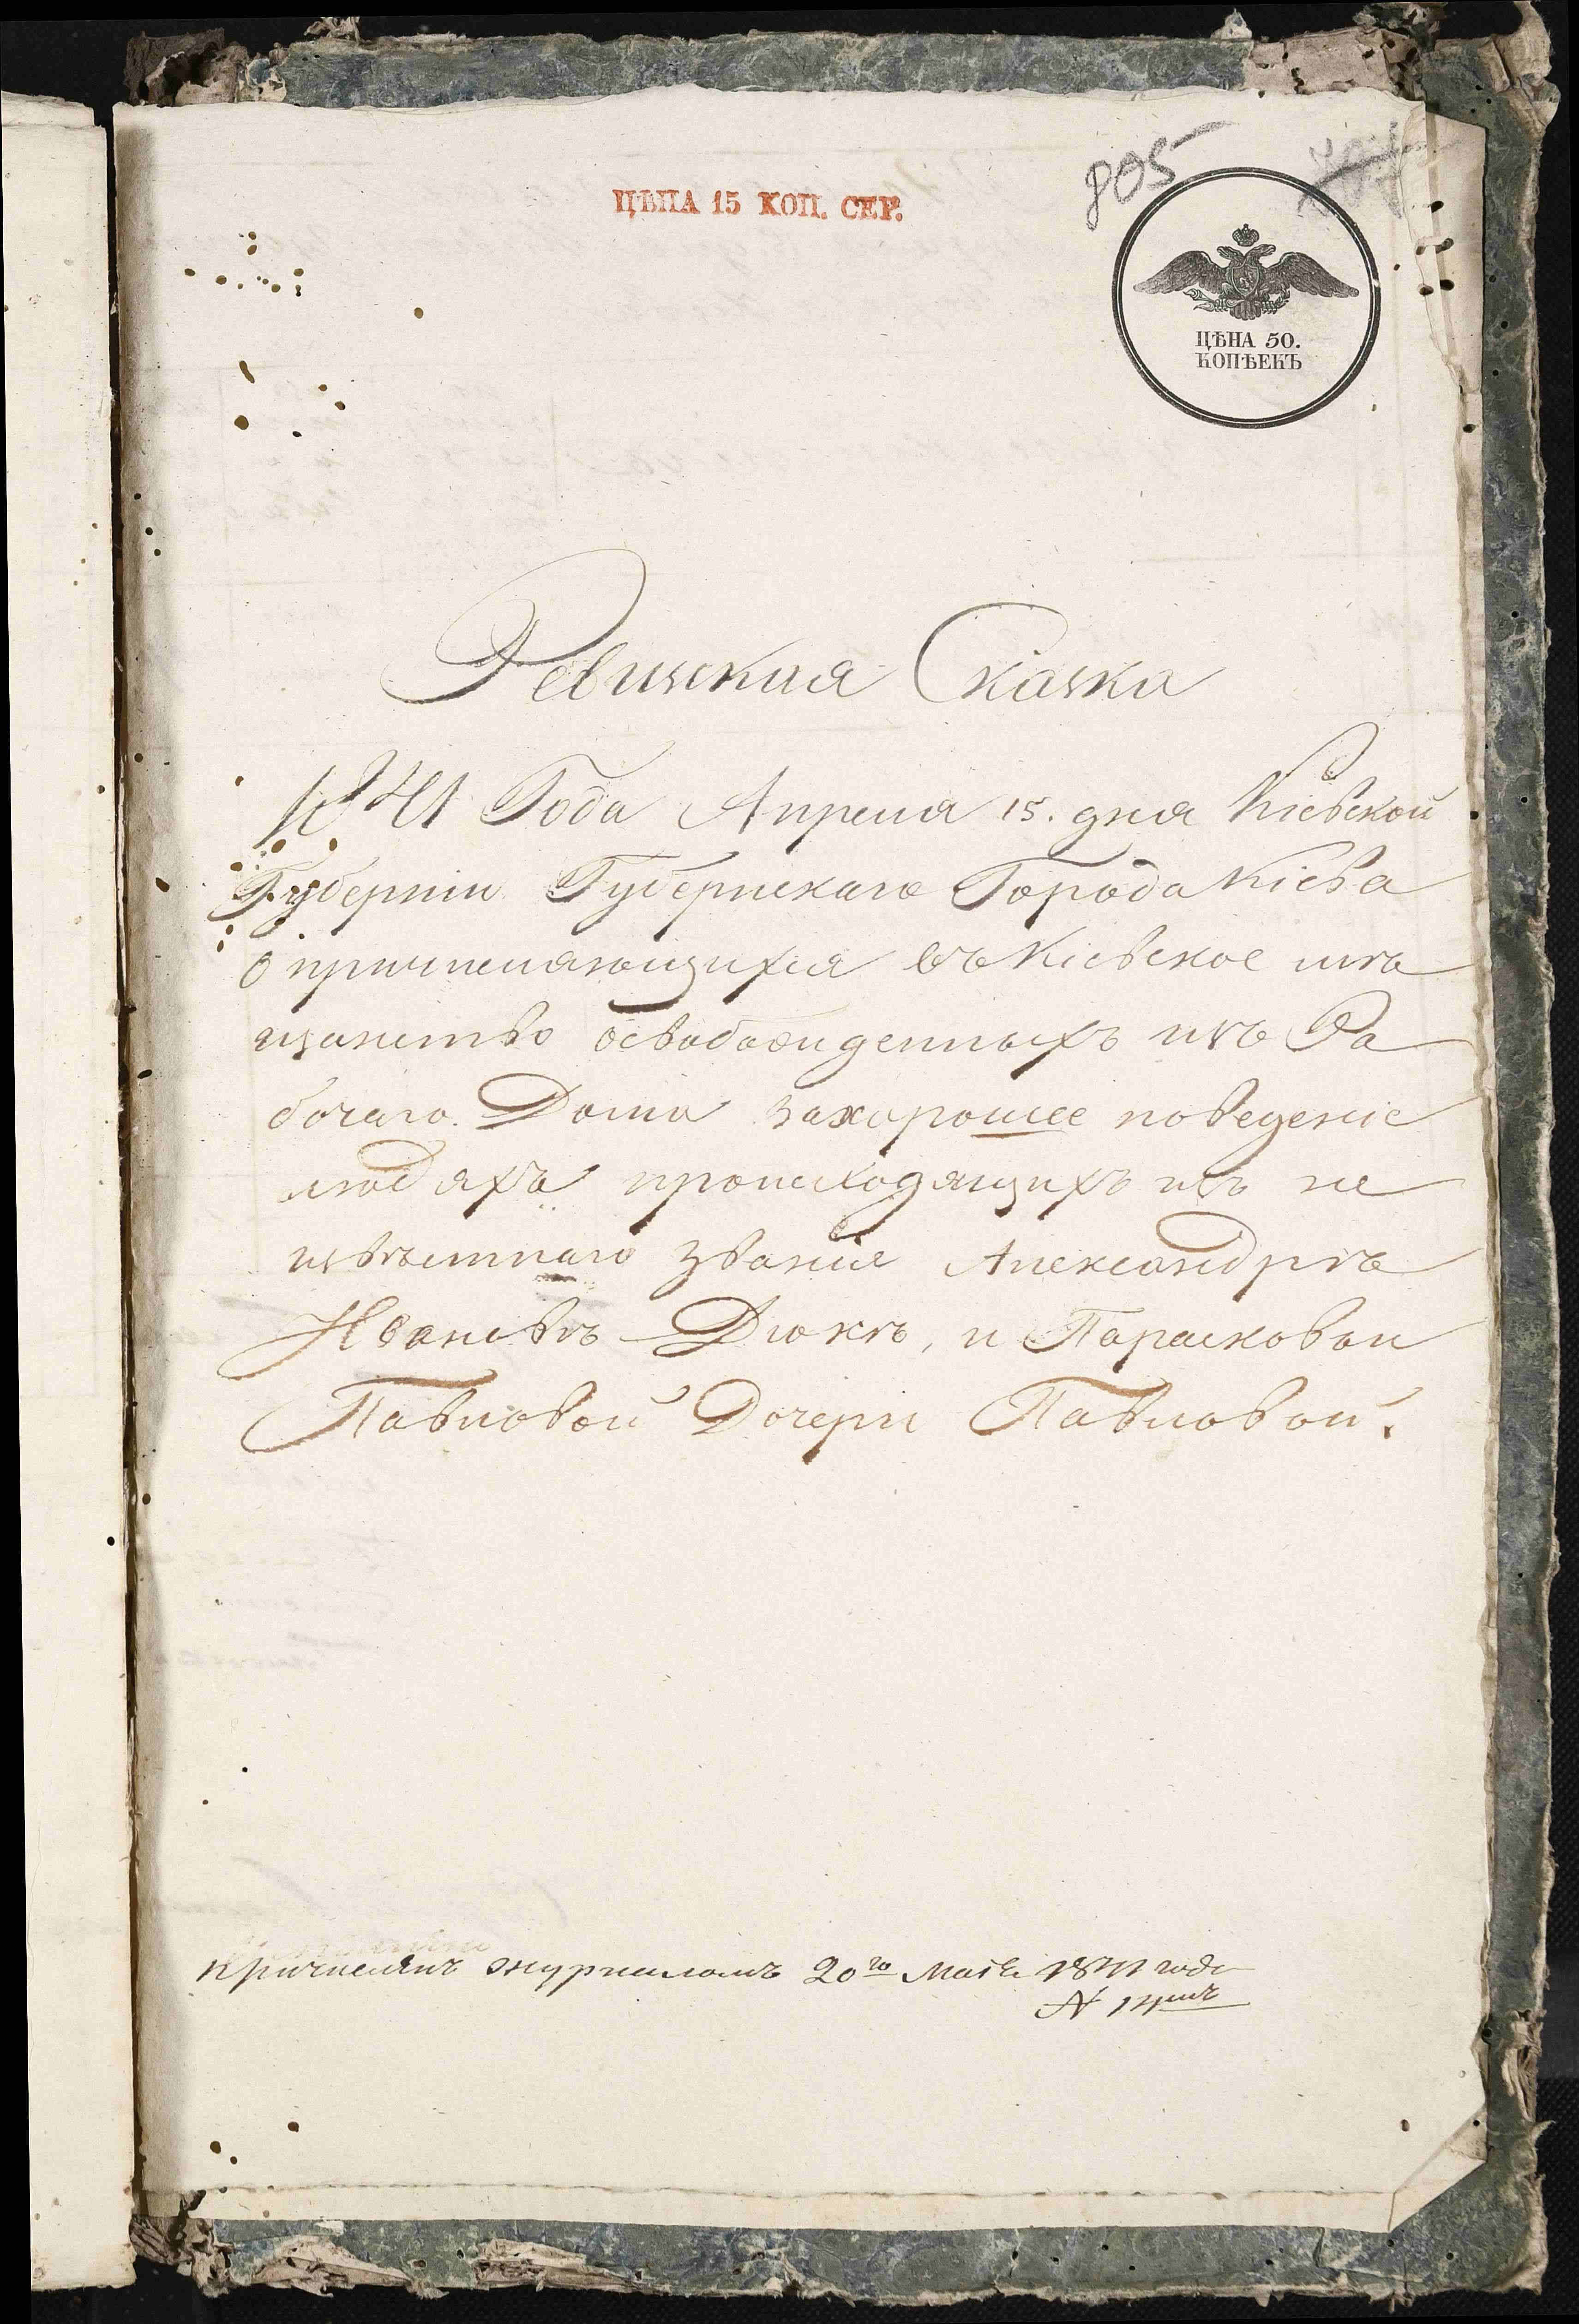 805
ЦѢНА 15 КОП. СЕР.
ЦѢНА 50.
КОПѢЕКЪ
Ревизкая Сказка
1841 Года Апреля 15. дня Кіевской
Губерніи Губернскаго Города Кіева
о причисляющихся въ Кіевское мѣ
щанство освобожденныхъ изъ Ра
бочаго Дома за хорошее поведеніе
людяхъ происходящихъ изъ не
извѣстнаго званія Александрѣ
Ивановѣ Дюкѣ, и Парасковьи
Павловой Дочери Павловой.
причислены журналомъ 20го Маія 1841 года